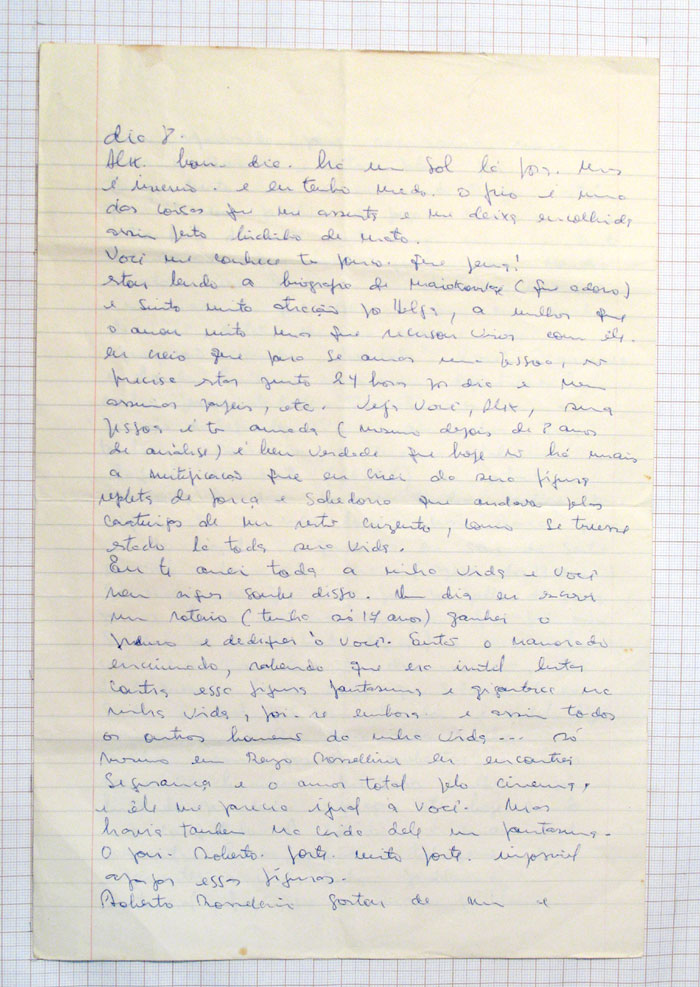 dia 8.
Alex. bom dia. há um Sol lá fora. Mas
é inverno. e eu tenho medo. O frio é uma
das coisas que me assusta e me deixa encolhida
assim feito bichinho de mato.
Você me conhece tão pouco. Que pena!
estou lendo a biografia de Maiakowsky (que adoro)
e sinto muita atração por, a mulher que
o amou muito mas que recusou viver com êle.
eu creio que para se amar uma pessoa, não
precisa estar junto 24 horas por dia e nem
assinar papeis, etc. Veja Você, Alex, sua
pessoa é tão amada (mesmo depois de 8 anos
de análise) é bem verdade que hoje não há mais
a mitificação que eu criei da sua figura
repleta de força e Sabedoria que andava pelas
caatingas de um sertão cinzento, como se tivesse
estado lá toda sua vida.
Eu te amei toda a minha vida e Você
nem siquer soube disso. Um dia eu escrevi
um roteiro (tinha só 17 anos) ganhei o
prêmio e dediquei à você. Então o namorado
enciumado, sabendo que era inútil lutar
contra essa figura fantasma e gigantesca na
minha vida, foi-se embora. e assim todos
os outros homens da minha vida... só
mesmo em Renzo Rossellini eu encontrei
Segurança e o amor total pelo cinema,
e êle me parecia igual a você. Mas
havia tambem na vida dele um fantasma.
O pai. Roberto. forte. muito forte. impossível
apagar essas figuras.
Roberto Rossellini gostou de mim e